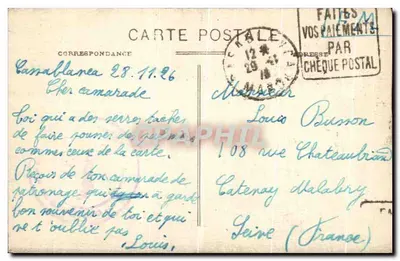 CARTE POSTALE
CORRESPONDANCE
FAITES
VOS PAIEMENTS
PAR
CHÈQUE POSTAL
Cassablanca 28.11.26
Cher camarade
Toi qui a des serres
de faire
de la carte.
Reçois de ton camarade de
patronage qui à garde
bon souvenir de toi et qui
ne t'oublie pas
Louis.
Monsieur
Louis Buisson
108 rue Chateaubriand
Catenay Malabry
Seine (France)